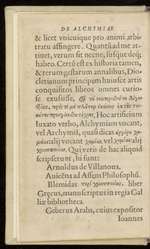 DE ALCHYMIAE
& licet vnicuique pro animi arbi-
tratu assingere. Quantum me at-
tinet, verùm sit necne, susque deq;
habeo. Certè est ex historia tamen,
& rerum gestarum annalibus, Dio-
cletianum principem huiusce artis
conquisitos libros omnes curio-
sè exussisse,
Hoc artificium
luxato verbo, Alchymiam vocant,
vel Archymiã, quasi dicas
vel vocant
Qui verò de hac aliquid
scripserunt, hi sunt:
Arnoldus de Villanous.
Auicena ad Assum Philosophũ.
Blemidas liber
Græcus, manuscriptus in regia Gal-
liæ bibliotheca.
Geberus Arabs, cuius expositor
Ioannes